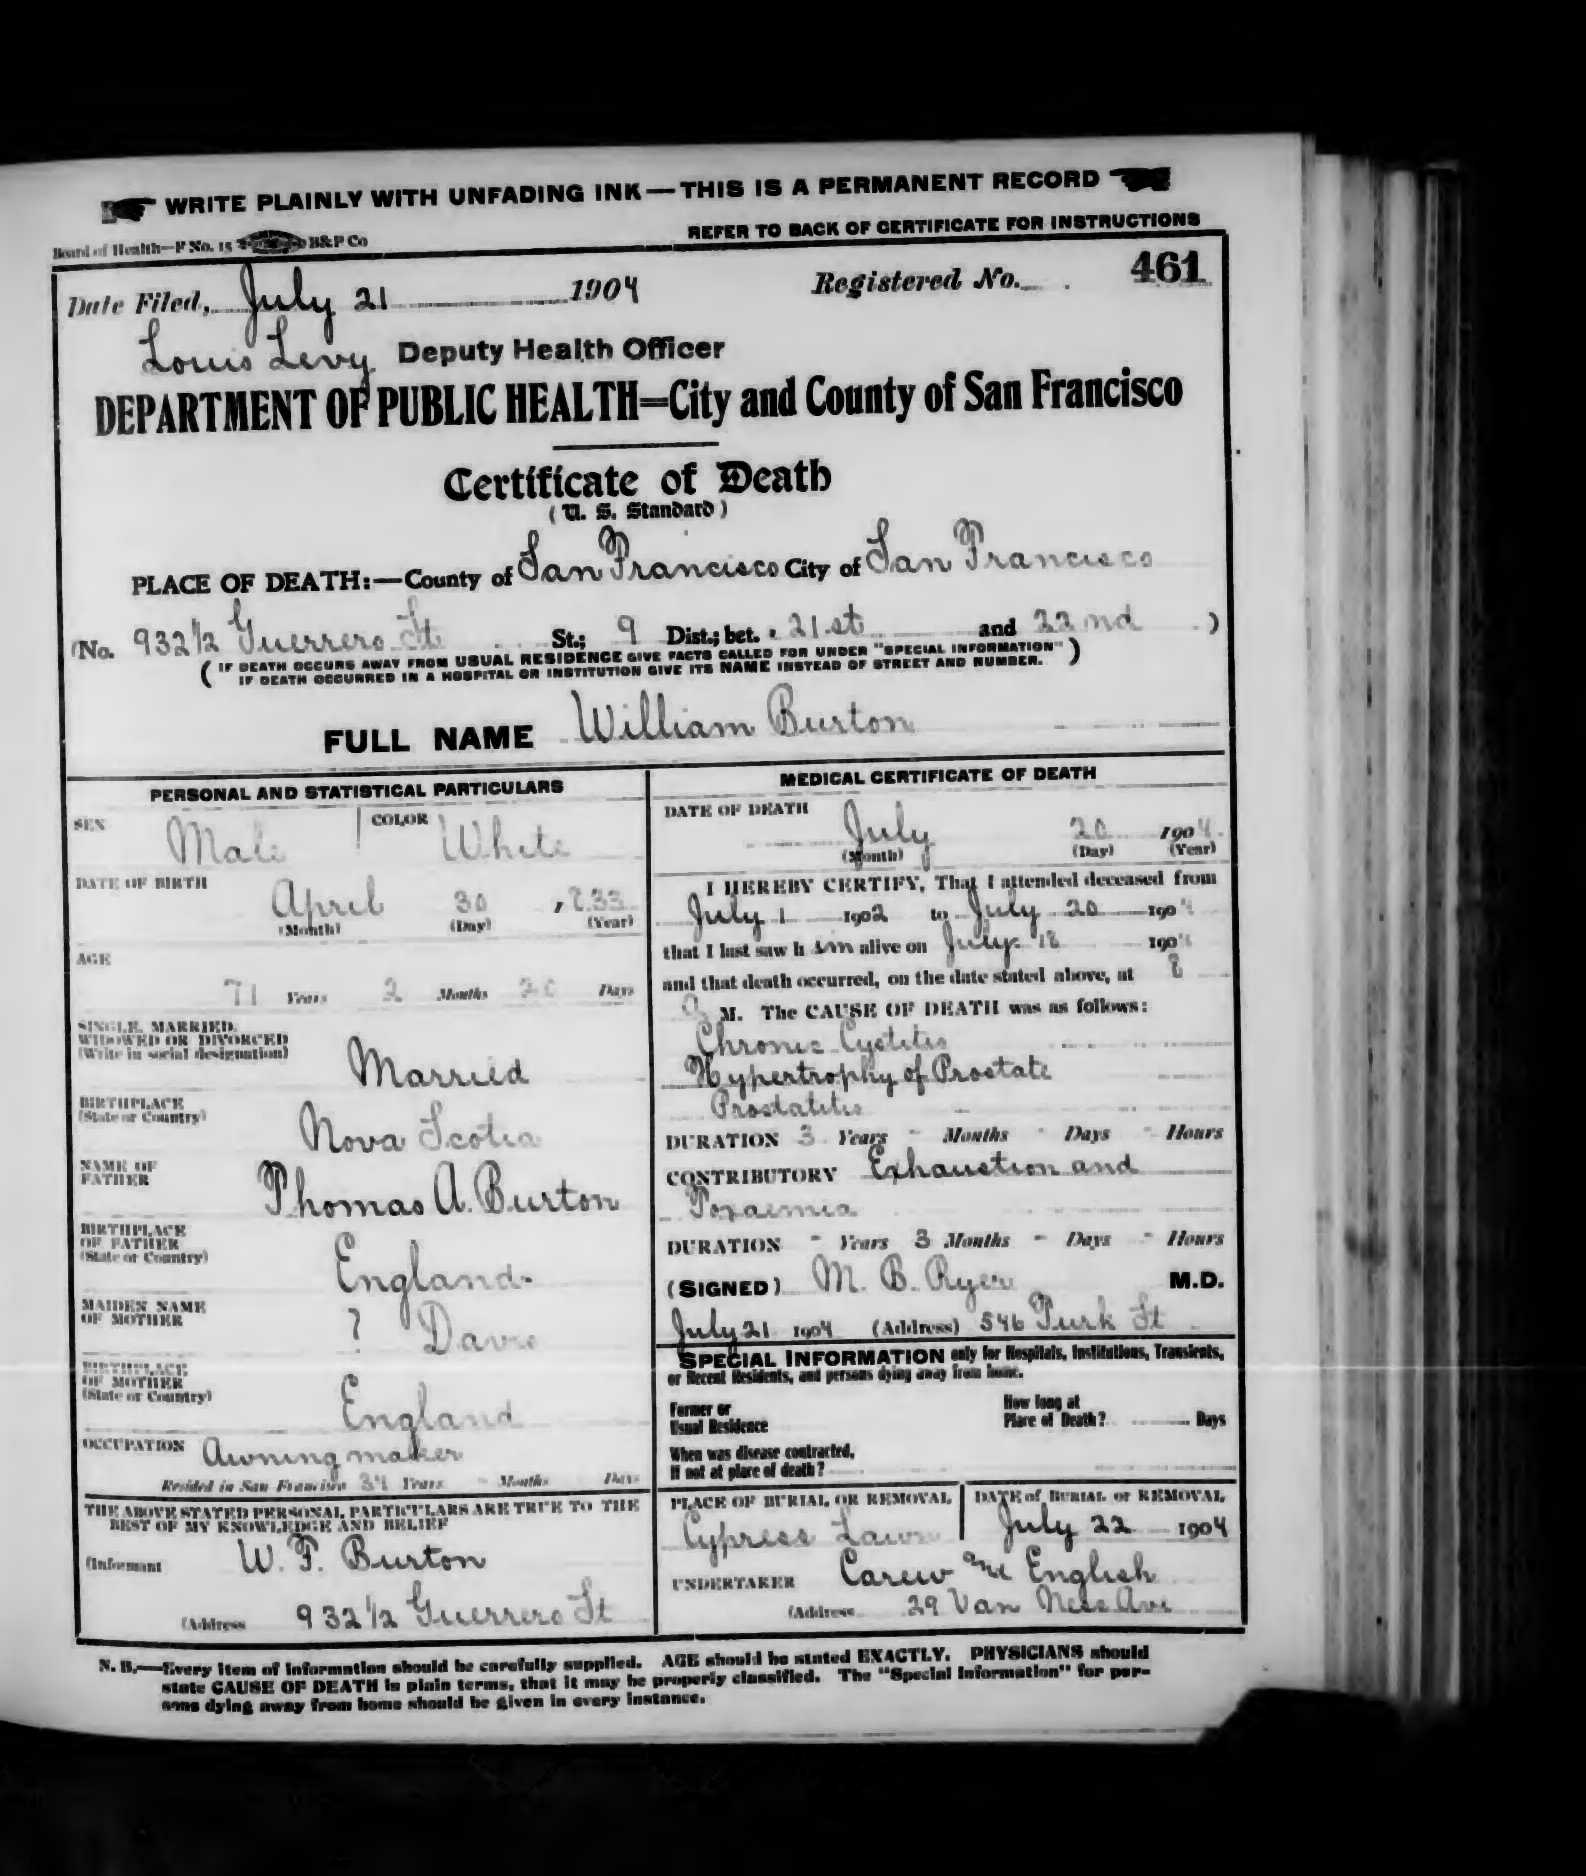 WRITE PLAINLY WITH UNFADING INK—THIS IS A PERMANENT RECORD
Board of Health—F No. 15 B&P Co
REFER TO BACK OF CERTIFICATE FOR INSTRUCTIONS
Date Filed, July 21 1904 Registered No. 461
Louis Levy Deputy Health Officer
DEPARTMENT OF PUBLIC HEALTH=City and County of San Francisco
Certificate of Death
(U. S. Standard)
PLACE OF DEATH:—County of San Francisco City of San Francisco
(No. 932 1/2 Guerrero St St.; 9 Dist.; bet. 21st and 22nd )
( IF DEATH OCCURS AWAY FROM USUAL RESIDENCE GIVE FACTS CALLED FOR UNDER "SPECIAL INFORMATION" )
IF DEATH OCCURRED IN A HOSPITAL OR INSTITUTION GIVE ITS NAME INSTEAD OF STREET AND NUMBER.
FULL NAME William Burton
PERSONAL AND STATISTICAL PARTICULARS
SEX Male COLOR White
DATE OF BIRTH
April 30, 1833
(Month) (Day) (Year)
AGE
71 Years 2 Months 20 Days
SINGLE, MARRIED,
WIDOWED OR DIVORCED
(Write in social designation) Married
BIRTHPLACE
(State or Country) Nova Scotia
NAME OF
FATHER Thomas A. Burton
BIRTHPLACE
OF FATHER
(State or Country) England
MAIDEN NAME
OF MOTHER ? Davis
BIRTHPLACE
OF MOTHER
(State or Country) England
OCCUPATION Awning maker
Resided in San Francisco 34 Years - Months Days
THE ABOVE STATED PERSONAL PARTICULARS ARE TRUE TO THE
BEST OF MY KNOWLEDGE AND BELIEF
(Informant W. F. Burton
(Address 932 1/2 Guerrero St
MEDICAL CERTIFICATE OF DEATH
DATE OF DEATH
July 20 1904
(Month) (Day) (Year)
I HEREBY CERTIFY, That I attended deceased from
July 1 1902 to July 20 1904
that I last saw him alive on July 18 1904
and that death occurred, on the date stated above, at 8
a M. The CAUSE OF DEATH was as follows:
Chronic Cystitis
Hypertrophy of Prostate
Prostatitis
DURATION 3 Years - Months - Days - Hours
CONTRIBUTORY Exhaustion and
Toxaemia
DURATION - Years 3 Months - Days - Hours
(SIGNED) M. B. Ryer M.D.
July 21 1904 (Address) 546 Turk St
SPECIAL INFORMATION only for Hospitals, Institutions, Transients,
or Recent Residents, and persons dying away from home.
Former or
Usual Residence
How long at
Place of Death? Days
When was disease contracted,
If not at place of death?
PLACE OF BURIAL OR REMOVAL
Cypress Lawn
DATE of BURIAL or REMOVAL
July 22 1904
UNDERTAKER Carew and English
(Address 29 Van Ness Ave
N. B.—Every item of information should be carefully supplied. AGE should be stated EXACTLY. PHYSICIANS should
state CAUSE OF DEATH in plain terms, that it may be properly classified. The "Special Information" for per-
sons dying away from home should be given in every instance.